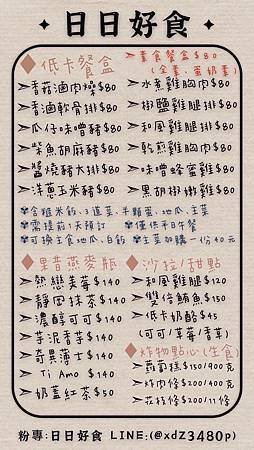 日日好食
低卡餐盒
素食餐盒$80
(全素、蛋奶素)
香菇滷肉燥$80
香滷軟骨排$80
瓜仔味噌豬$80
柴魚胡麻豬$80
醬燒豬大排$80
洋蔥玉米豬$80
水煮雞胸肉$80
椒鹽雞腿排$80
和風雞腿排$80
乾煎雞胸肉$80
味噌蜂蜜雞$80
黑胡椒嫩雞$80
含糙米飯、3道菜、半顆蛋、地瓜、主菜
需提前1天預訂
僅供平日午餐
可換主食地瓜、白飯
主菜加購一份40元
果昔燕麥瓶
熱戀莓莓$140
靜岡抹茶$140
濃醇可可$140
芋泥香芋$140
奇異博士$140
Ti Amo $140
奶蓋紅茶$50
沙拉/甜點
和風雞腿$120
雙倍鮪魚$150
低卡奶酪$45
(可可/草莓/香草)
炸物點心(生食
$150/900克
炸肉條$200/400克
花枝條$200/11條
粉專:日日好食 LINE:(@xdz3480p)